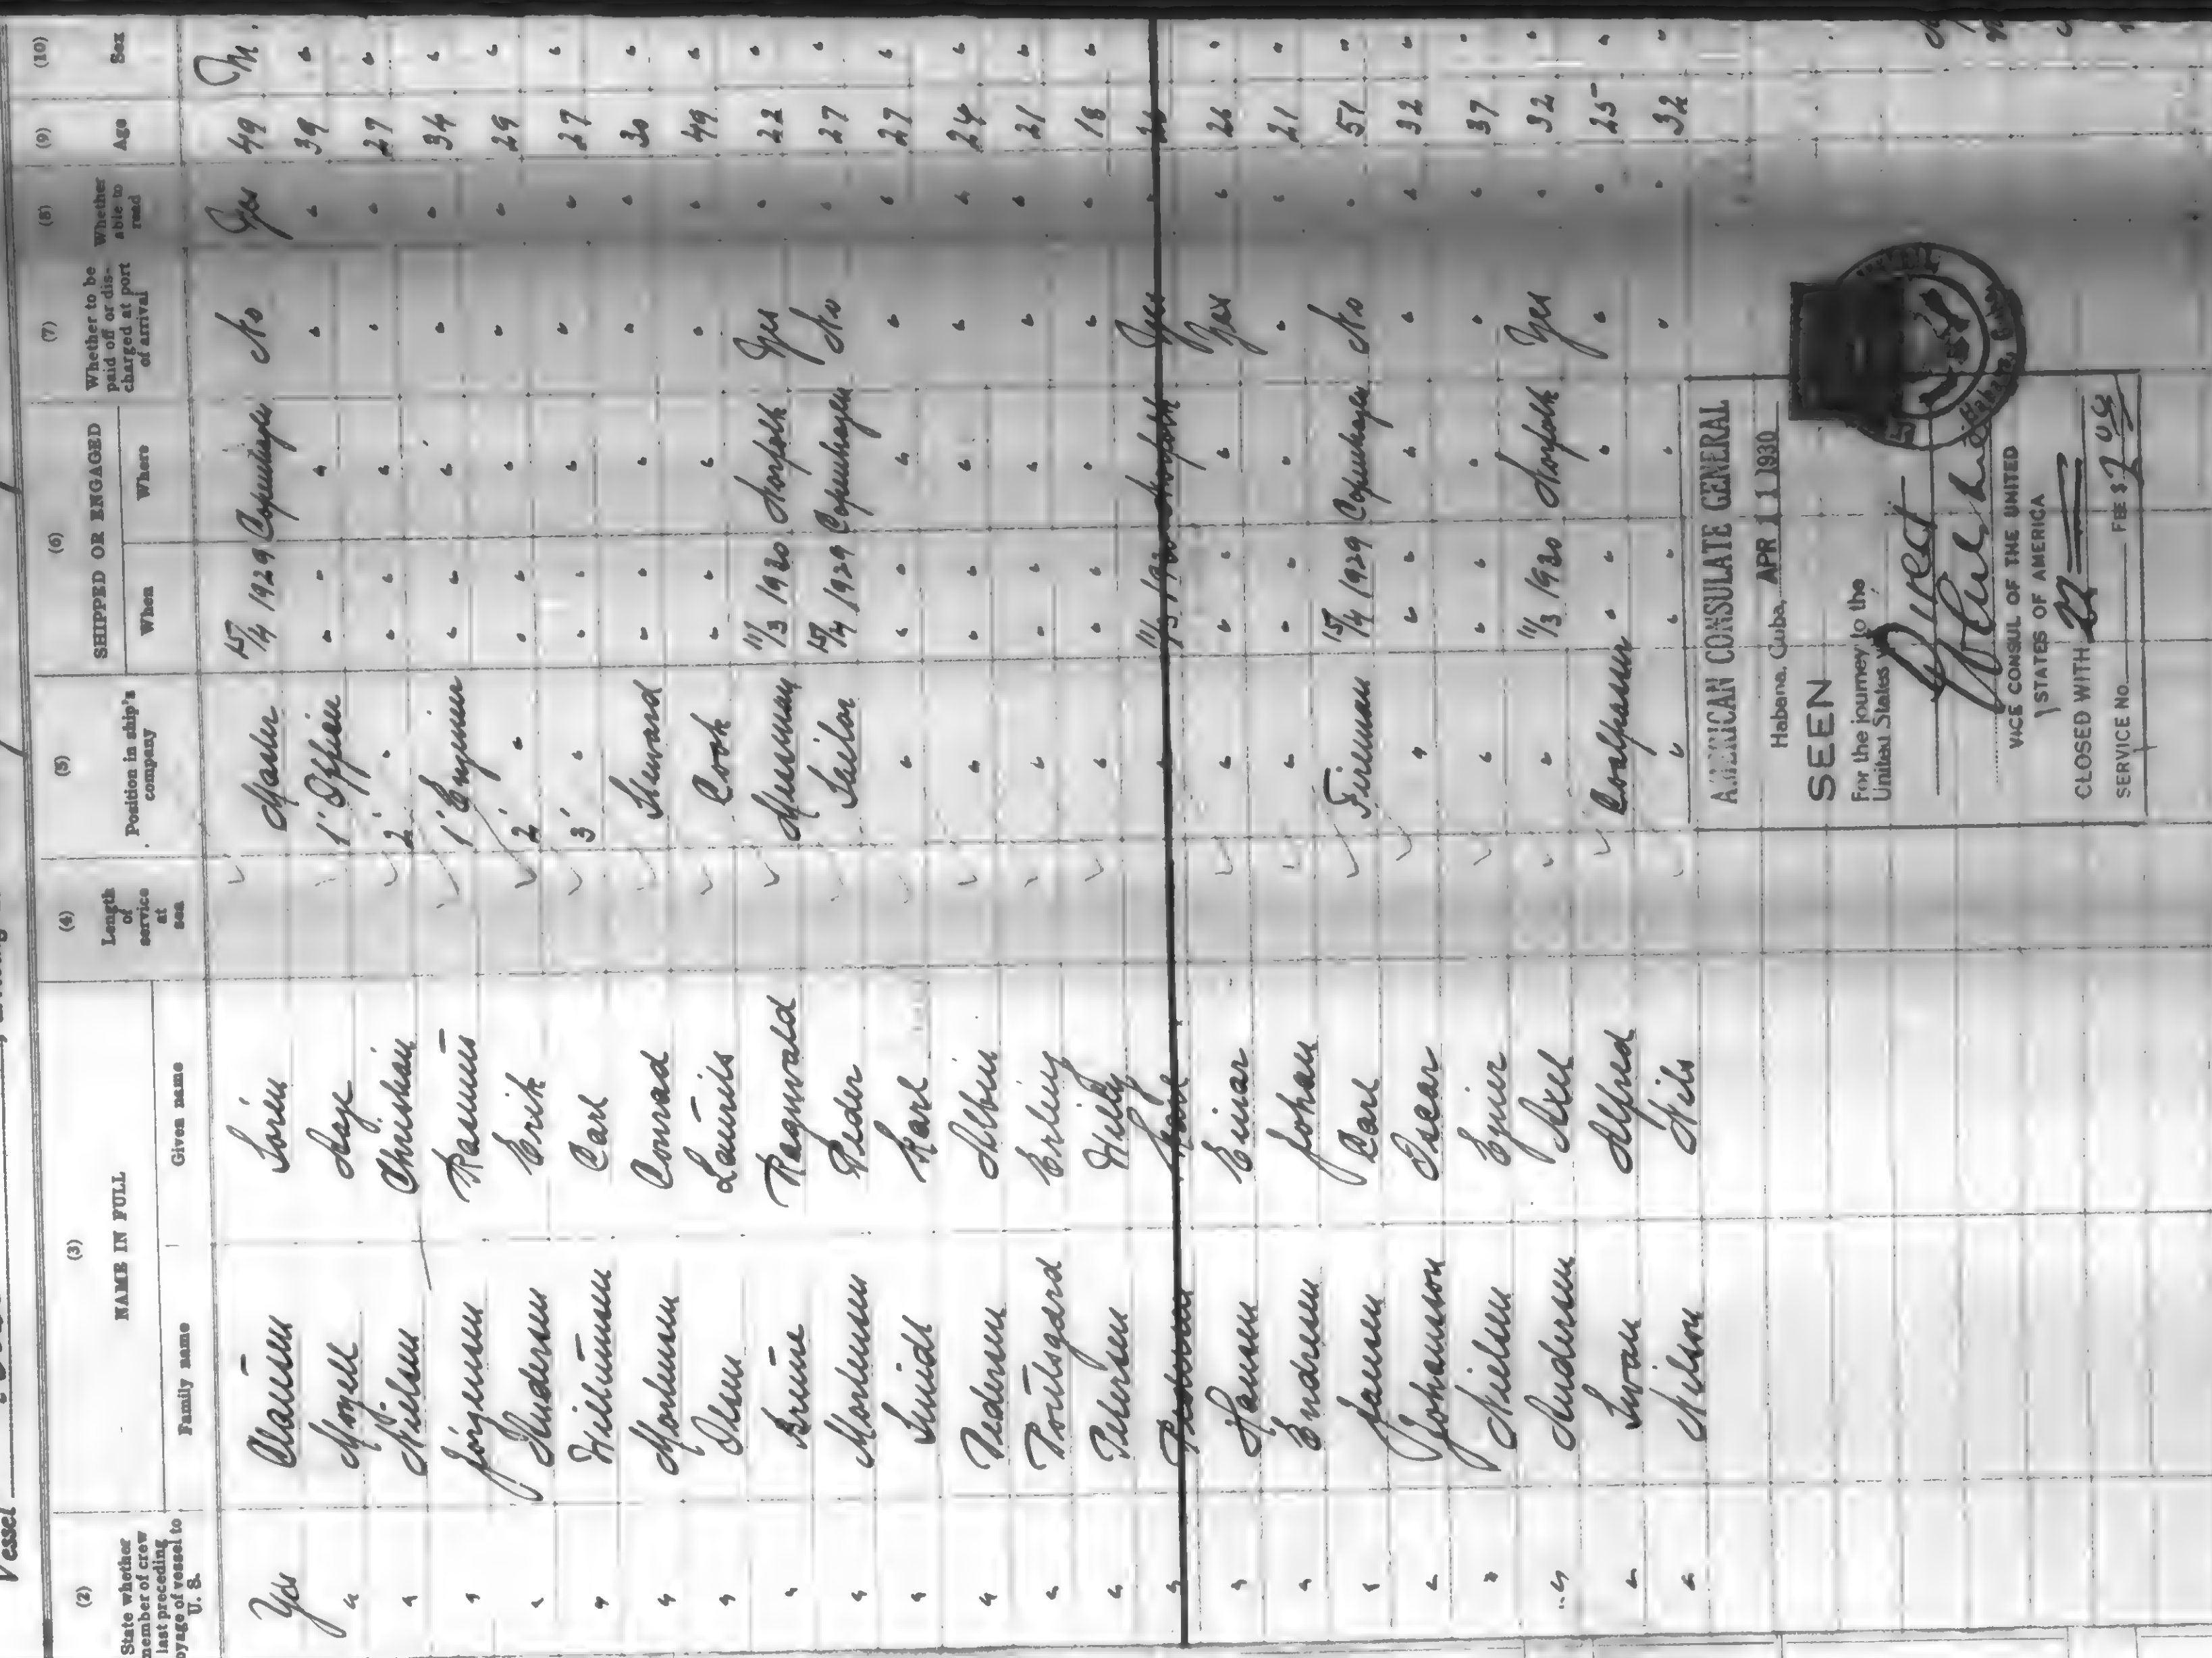 Vessel
(2) (3) (4) (5) (6) (7) (8) (9) (10)
State whether member of crew last preceding voyage of vessel to U. S. | NAME IN FULL | Length of service at sea | Position in ship's company | SHIPPED OR ENGAGED | Whether to be paid off or discharged at port of arrival | Whether able to read | Age | Sex
Family name | Given name | When | Where
Yes Clausen Sören Master 15/4 1929 Copenhagen No Yes 49 M.
" Moyell Aage 1' Officer " " " " 39 "
" Nielsen Christian 2' " " " " " 27 "
" Jörgensen Rasmus 1' Engineer " " " " 34 "
" Andersen Erik 2' " " " " " 29 "
" Carl 3' " " " " " 27 "
" Mortensen Conrad Steward " " " " 30 "
" Olsen Laurits Cook " " " " 49 "
" Bruue Ragnvald Messman 11/3 1930 Norfolk Yes " 22 "
" Mortensen Peder Sailor 15/4 1929 Copenhagen No " 27 "
" Smidt Karl " " " " " 27 "
" Pedersen Albin " " " " " 24 "
" Poulsgard Erling " " " " " 21 "
" Petersen Willy " " " " " 18 "
" 11/3 1930 Norfolk Yes " "
" Hansen Einar " " " Yes " 26 "
" Endresen Johan " " " " " 21 "
" Jansen Carl Fireman 15/4 1929 Copenhagen No " 51 "
" Johansson Oscar " " " " " 32 "
" Nielsen Ejner " " " " " 37 "
" Andersen Axel " 11/3 1930 Norfolk Yes " 32 "
" Svan Alfred Coalpasser " " " " 25 "
" Nilson Nils " " " " " 32 "
AMERICAN CONSULATE GENERAL
Habana, Cuba, APR 11 1930
SEEN
For the journey to the
United States
Direct
VICE CONSUL OF THE UNITED
STATES OF AMERICA
CLOSED WITH 22
SERVICE No. FEE $
Habana, Cuba